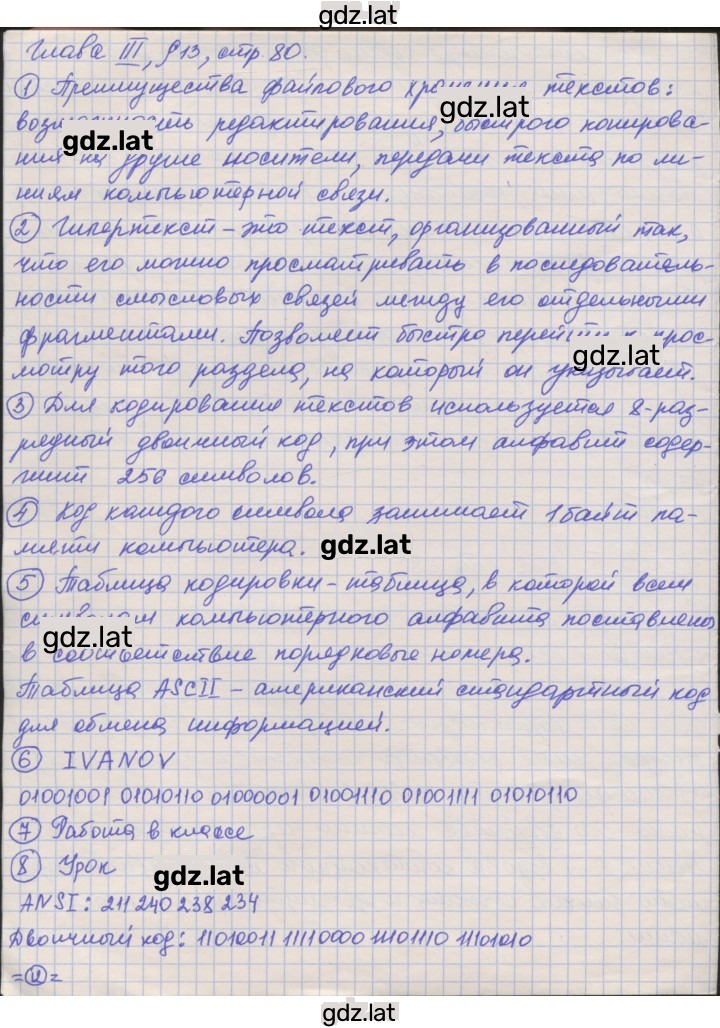 gdz.lat
Глава III, §13, стр. 80.
① Преимущества файлового хранения текстов:
gdz.lat
возможность редактирования, быстрого копирова-
gdz.lat
ния на другие носители, передачи текста по ли-
ниям компьютерной связи.
② Гипертекст – это текст, организованный так,
что его можно просматривать в последователь-
ности смысловых связей между его отдельными
фрагментами. Позволяет быстро перейти к прос-
gdz.lat
мотру того раздела, на который он указывает.
③ Для кодирования текстов используется 8-раз-
рядный двоичный код, при этом алфавит содер-
жит 256 символов.
④ Код каждого символа занимает 1 байт па-
мяти компьютера.
gdz.lat
⑤ Таблица кодировки – таблица, в которой всем
символам компьютерного алфавита поставлены
gdz.lat
в соответствие порядковые номера.
Таблица ASCII – американский стандартный код
для обмена информацией.
⑥ IVANOV
01001001 01010110 01000001 01001110 01001111 01010110
⑦ Работа в классе
⑧ Урок
gdz.lat
ANSI: 211 240 238 234
Двоичный код: 11010011 11110000 11101110 11101010
gdz.lat